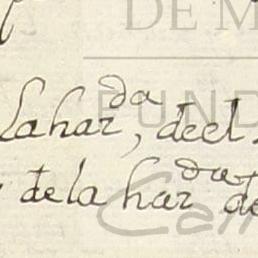 DE M
FUND
la harda, de el
de la harda de
Car